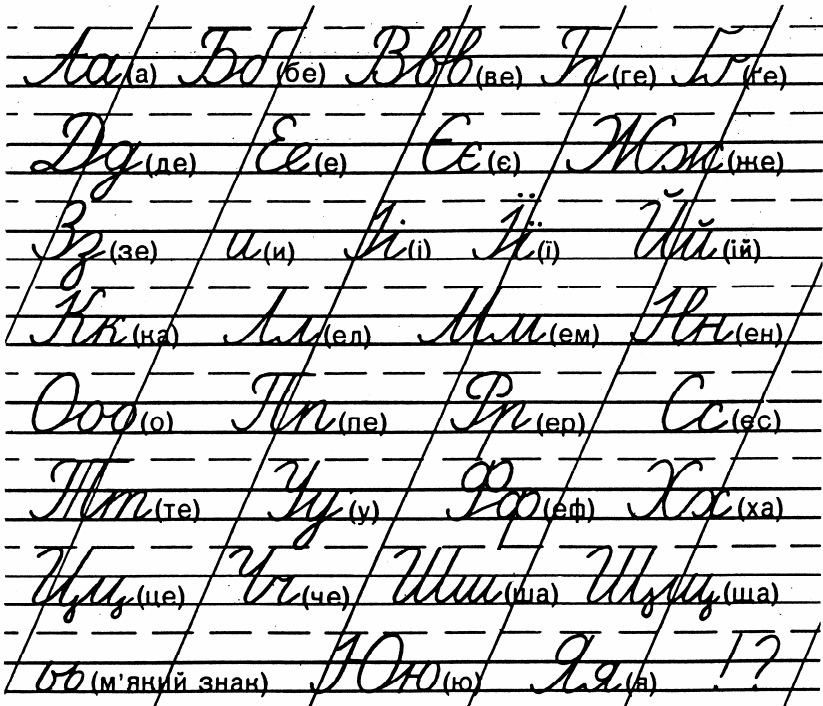 Аа (а) Бб (бе) Ввв (ве) Гг (ге) Ґґ (ґе)
Дд (де) Ее (е) Єє (є) Жж (же)
Зз (зе) и (и) Іі (і) Її (ї) Йй (ій)
Кк (ка) Лл (ел) Мм (ем) Нн (ен)
Ооо (о) Пп (пе) Рр (ер) Сс (ес)
Тт (те) Уу (у) Фф (еф) Хх (ха)
Цц (це) Чч (че) Шш (ша) Щщ (ща)
ьь (м'який знак) Юю (ю) Яя (я) !?